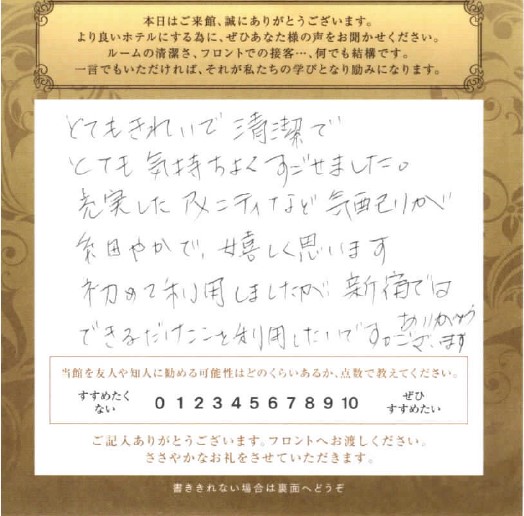 本日はご来館、誠にありがとうございます。
より良いホテルにする為に、ぜひあなた様の声をお聞かせください。
ルームの清潔さ、フロントでの接客…、何でも結構です。
一言でもいただければ、それが私たちの学びとなり励みになります。
とてもきれいで清潔で
とても気持ちよくすごせました。
充実したアメニティなど気配りが
細やかで、嬉しく思います
初めて利用しましたが新宿では
できるだけここを利用したいです。ありがとう
ございます
当館を友人や知人に勧める可能性はどのくらいあるか、点数で教えてください。
すすめたくない 0 1 2 3 4 5 6 7 8 9 10 ぜひすすめたい
ご記入ありがとうございます。フロントへお渡しください。
ささやかなお礼をさせていただきます。
書ききれない場合は裏面へどうぞ